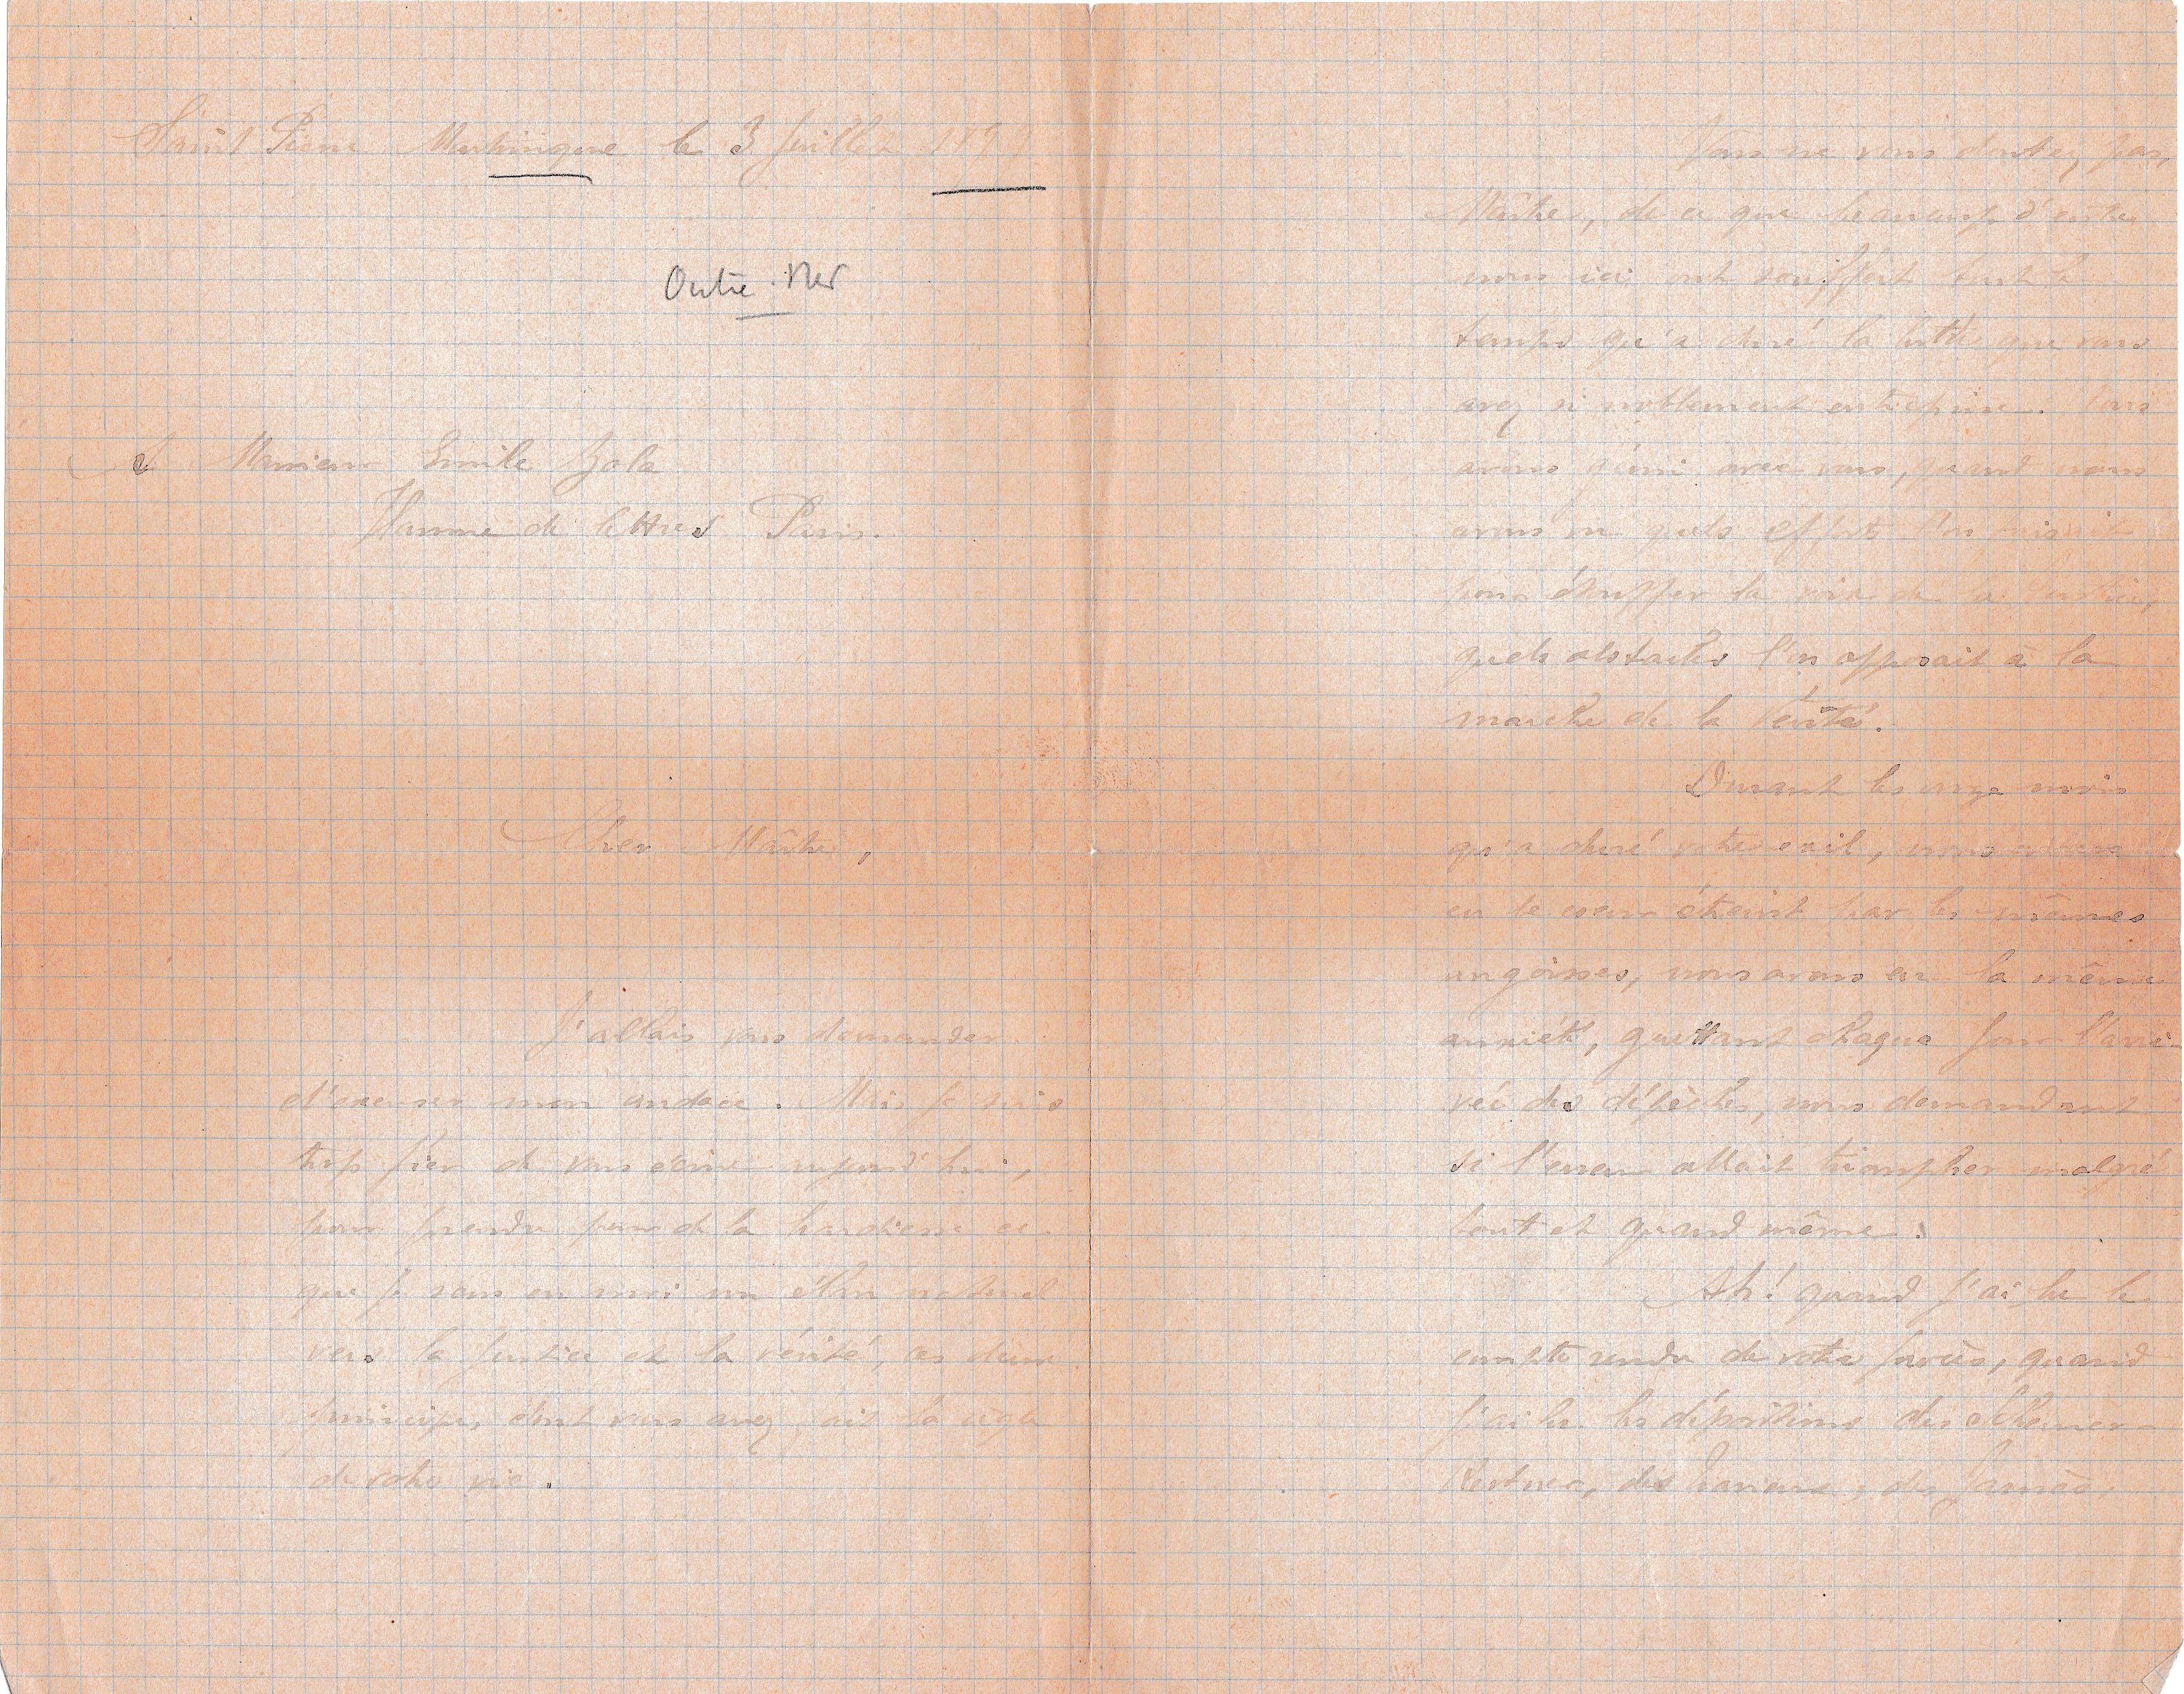 Saint Pierre Martinique le 3 Juillet 1899
Outre-Mer
A Monsieur Emile Zola
Homme de lettres Paris.
Cher Maître,
J'allais vous demander
d'excuser mon audace. Mais je suis
trop fier de vous écrire aujourd'hui,
pour prendre pour de la hardiesse ce
que je sens en moi un élan naturel
vers la justice et la vérité, ces deux
principes, dont vous avez fait la règle
de votre vie.
Vous ne vous doutez pas,
Maître, de ce que beaucoup d'entre
nous ici ont souffert tout le
temps qu'a duré la lutte que vous
avez si noblement entreprise. Nous
avons gémi avec vous, quand nous
avons vu quels efforts l'on
pour étouffer la voix de la Justice,
quels obstacles l'on opposait à la
marche de la Vérité.
Durant les onze mois
qu'a duré votre exil, nous avons
eu le coeur étreint par les mêmes
angoisses, nous avons eu la même
anxiété, guettant chaque jour l'arri-
vée des dépèches, nous demandant
si l'erreur allait triompher malgré
tout et quand même.
Ah! quand j'ai lu le
compte rendu de votre procès, quand
j'ai lu les dépositions des Scheurer-
Kestner, des Trarieux, des Jaurès,